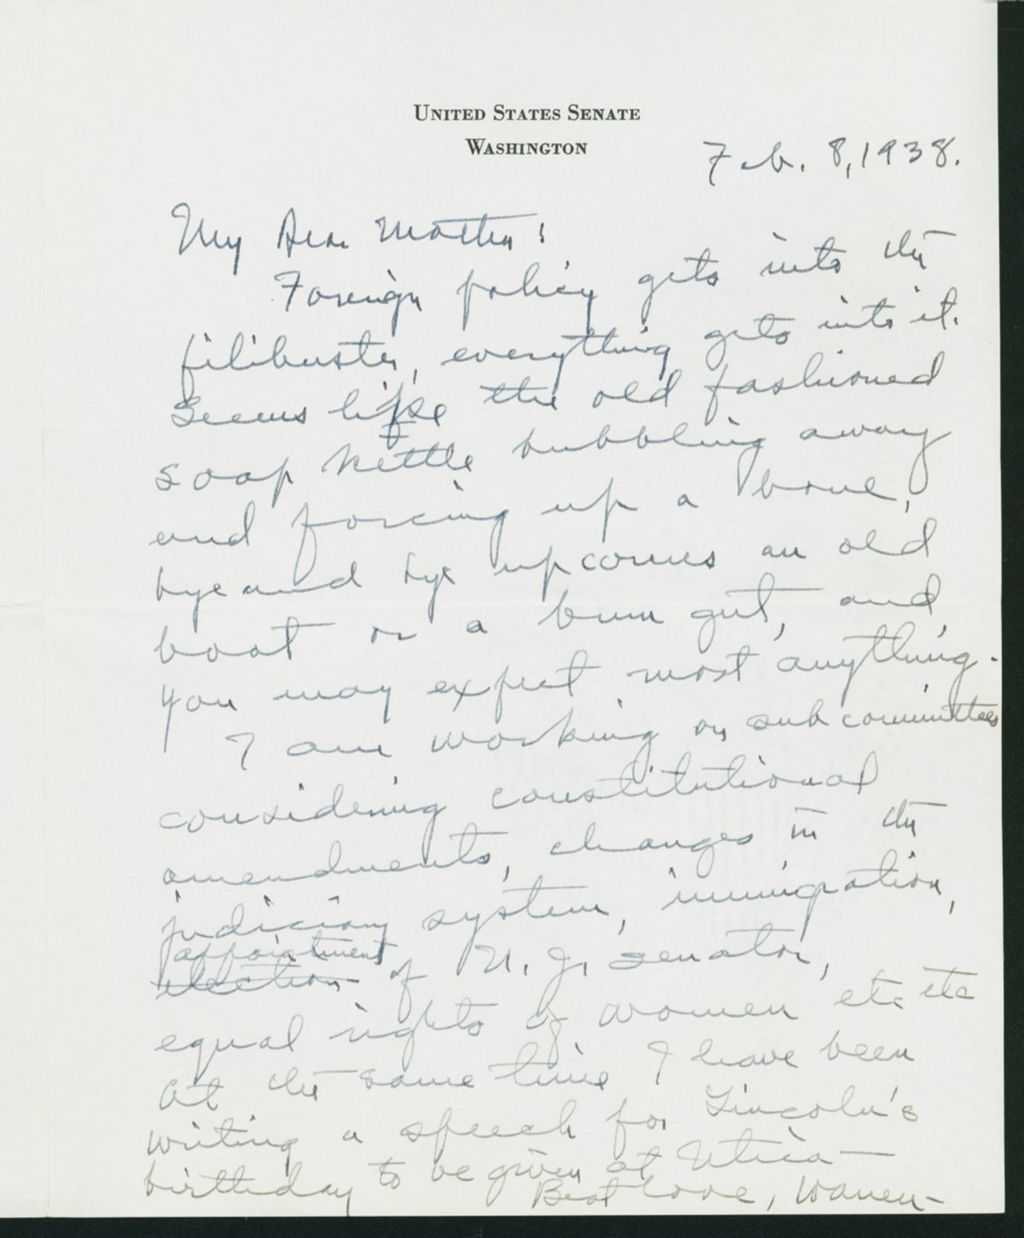 UNITED STATES SENATE
WASHINGTON
Feb. 8, 1938.
My Dear Mother:
Foreign policy gets into the
filibuster, everything gets into it.
Seems like the old fashioned
soap kettle bubbling away
and forcing up a bone,
bye and bye up comes an old
boot or a bum gut, and
you may expect most anything.
I am working on subcommittees
considering constitutional
amendments, changes in the
judiciary system, immigration,
appointment
election of N. J. senator,
equal rights of women etc etc
At the same time I have been
writing a speech for Lincoln's
birthday to be given at Utica—
Best love, Warren—